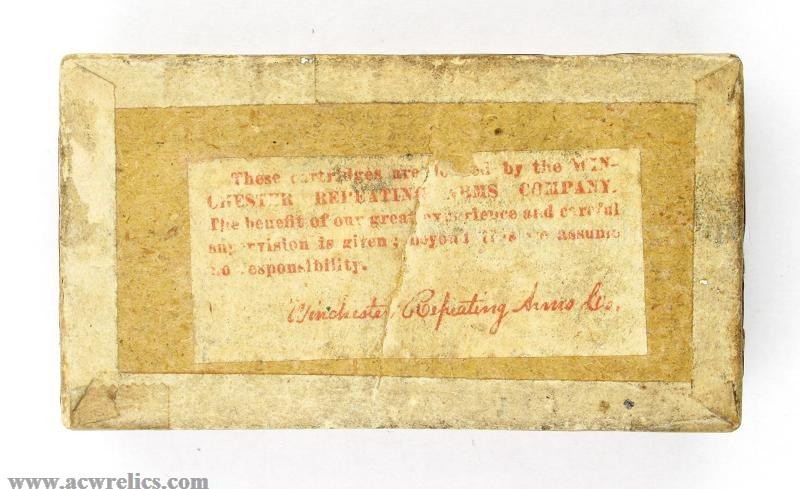 These cartridges are loaded by the WIN-
CHESTER REPEATING ARMS COMPANY.
The benefit of our great experience and careful
supervision is given; beyond this we assume
no responsibility.
Winchester Repeating Arms Co.
www.acwrelics.com